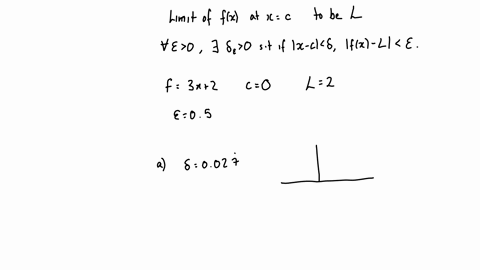 Limit of f(x) at x=c to be L
∀ε>0, ∃ δε>0 s.t if |x-c|<δ, |f(x)-L|<ε.
f=3x+2 c=0 L=2
ε=0.5
a) δ=0.027̇